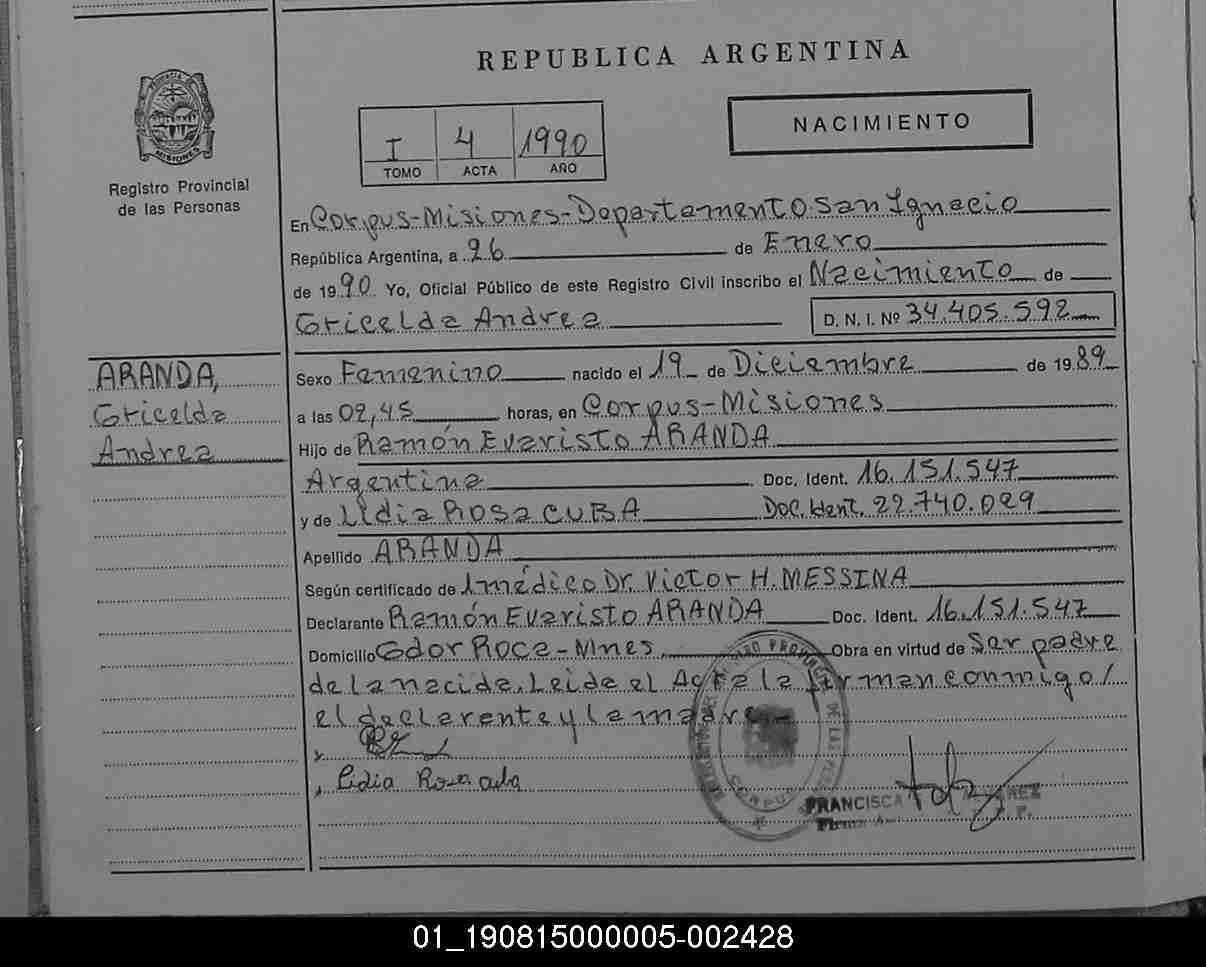 REPUBLICA ARGENTINA
PROVINCIA DE MISIONES
Registro Provincial
de las Personas
I 4 1990
TOMO ACTA AÑO
NACIMIENTO
En Corpus-Misiones-Departamento San Ignacio
República Argentina, a 26 de Enero
de 1990 Yo, Oficial Público de este Registro Civil inscribo el Nacimiento de
Gricelda Andrea D. N. I. Nº 34.405.592
ARANDA,
Gricelda
Andrea
Sexo Femenino nacido el 19 de Diciembre de 1989
a las 02,45 horas, en Corpus-Misiones
Hijo de Ramón Evaristo ARANDA
Argentina Doc. Ident. 16.151.547
y de Lidia Rosa CUBA Doc. Ident. 22.740.029
Apellido ARANDA
Según certificado de 1 médico Dr. Victor H. MESSINA
Declarante Ramón Evaristo ARANDA Doc. Ident. 16.151.547
Domicilio Gdor Roca-Mnes. Obra en virtud de Ser padre
de la nacida. Leida el Acta la firman conmigo/
el declarante y la madre.-
Lidia Rosa
CORPUS
FRANCISCA
01_190815000005-002428